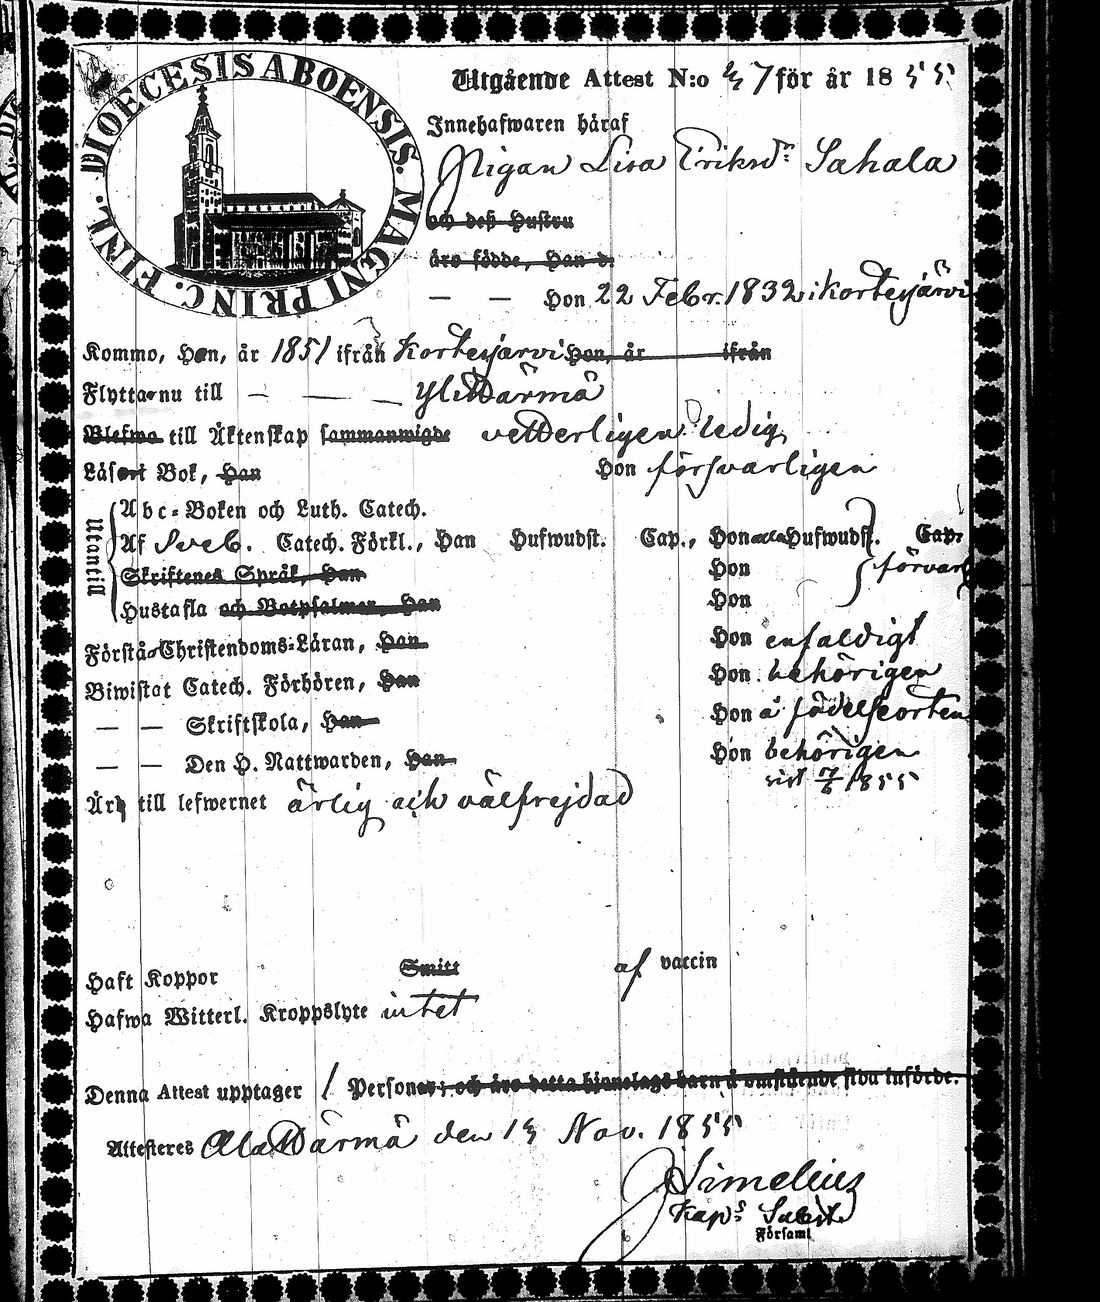 DIOECESIS ABOENSIS. MAGNI PRINC. FINL.
Utgående Attest N:o 7 för år 1855
Innehafwaren håraf
Pigan Lisa Eriksdr Sahala
och deß Hustru
äro födde, Han d.
— — Hon 22 Febr. 1832 i Kortesjärvi
Kommo, Hon, år 1851 ifrån Kortesjärvi Hon, år ifrån
Flytta nu till — — — Ylihärmä
Blefwo till Äktenskap sammanwigde vetterligen ledig
Läsa i Bok, Han Hon försvarligen
Utantill
Abc-Boken och Luth. Catech.
Af Sveb. Catech. Förkl., Han Hufwudst. Cap., Hon alla Hufwudst. Cap.
Skriftenes Språk, Han Hon försvarl
Hustafla och Botpsalmer, Han Hon
Förstå Christendoms-Läran, Han Hon enfaldigt
Biwistat Catech. Förhören, Han Hon behörigen
— — Skriftskola, Han Hon å födelseorten
— — Den H. Nattwarden, Han Hon behörigen
sist 1855
Är till lefwernet ärlig och välfrejdad
Haft Koppor Smitt af vaccin
Hafwa Witterl. Kroppslyte intet
Denna Attest upptager 1 Personer; och äro detta hjonelags barn å omstående sida införde.
Attesteras Alahärmä den Nov. 1855
J Simelius
Kaps
Förfaml